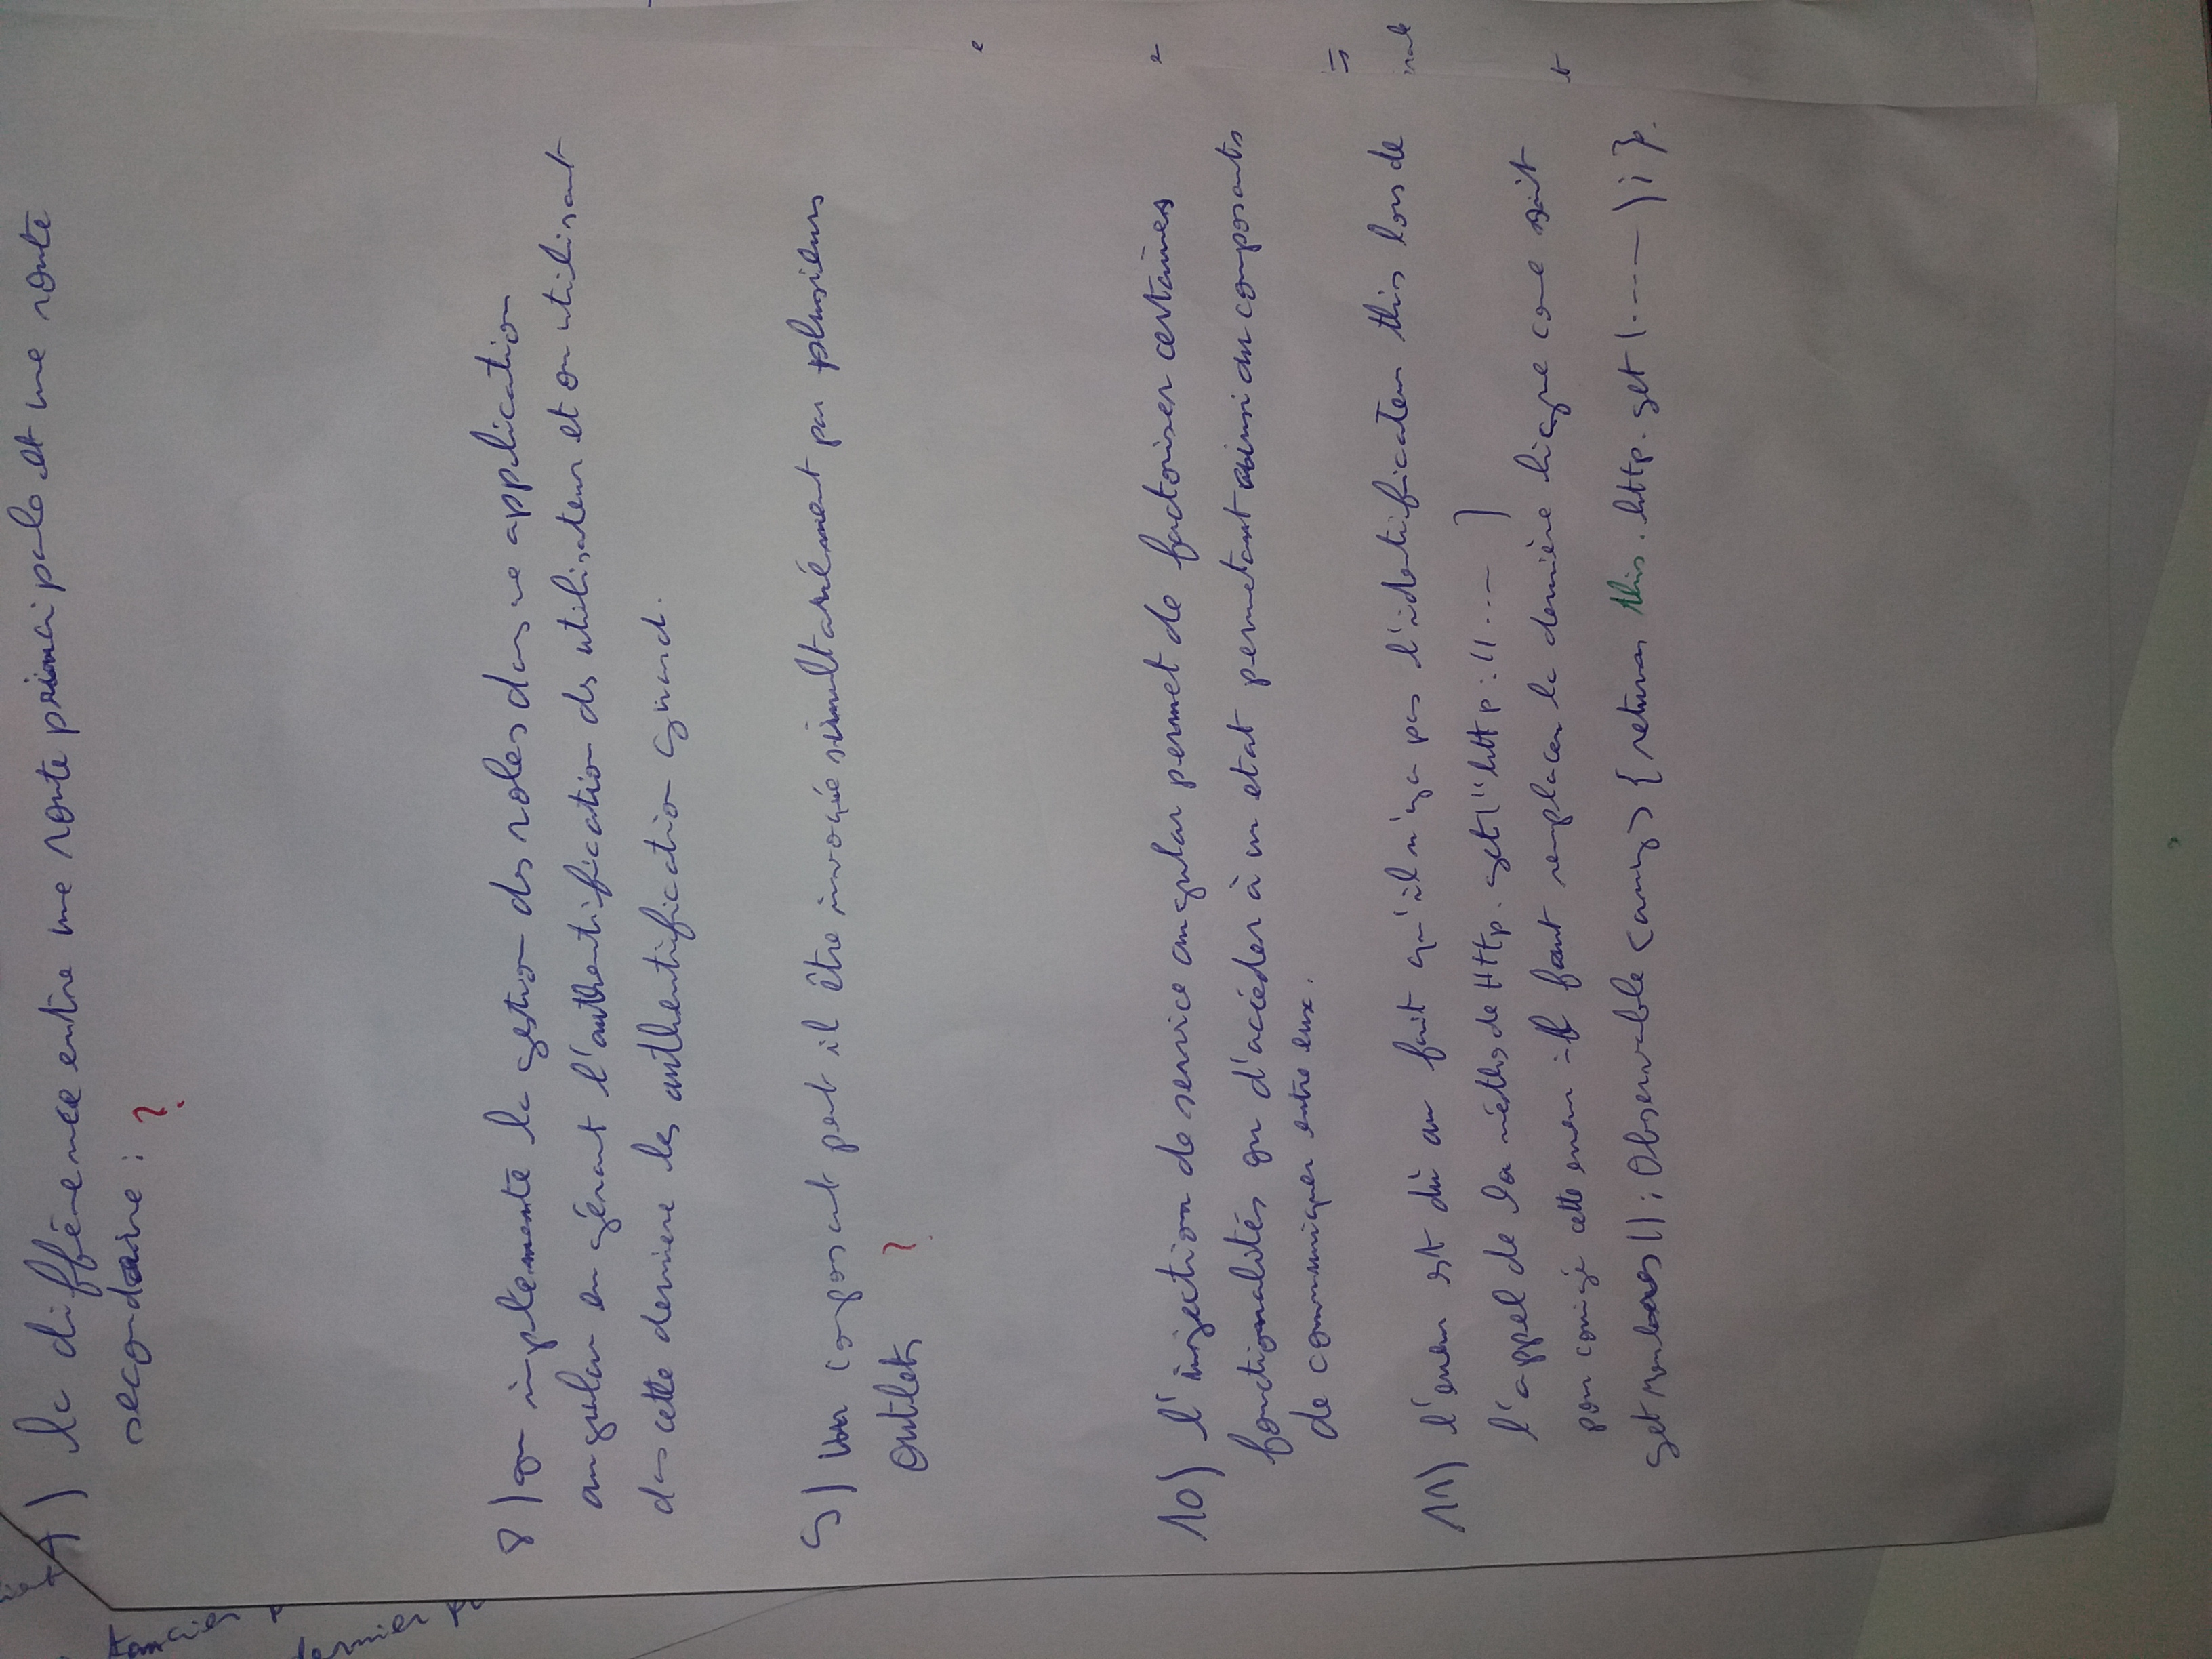 7) la différence entre une route principale et une route
secondaire : ?
8) on implemente la gestion des roles dans une application
angular en gérant l'authentification des utilisateur et on utilisant
dans cette derniere les authentification guard.
9) un composant peut il être invoqué simultanément par plusieurs
Outlets ?
10) l'injection de service angular permet de factoriser certaines
fonctionalités ou d'accéder à un etat permetant ainsi au composants
de communiquer entre eux.
11) l'erreur est dû au fait qu'il n'ya pas l'identificateur this lors de
l'appel de la méthode Http.get("http://.... )
pour corrigé cette erreur il faut remplacer la dernière ligne come suit
getMembres() : Observable <any> { return this.http.get(.....) ; }.
tancier p
dernier pr